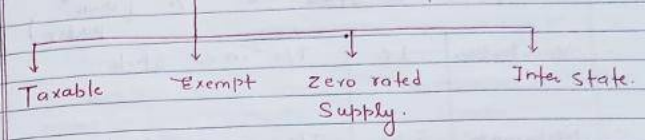 Taxable Exempt Zero rated Inter state.
Supply.